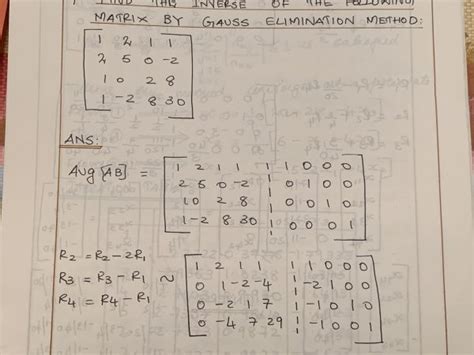 FIND THE INVERSE OF THE FOLLOWING
MATRIX BY GAUSS ELIMINATION METHOD:
1 2 1 1
2 5 0 -2
1 0 2 8
1 -2 8 30
ANS:
Aug [AB] = 1 2 1 1 1 0 0 0
2 5 0 -2 0 1 0 0
1 0 2 8 0 0 1 0
1 -2 8 30 0 0 0 1
R2 = R2 - 2R1
R3 = R3 - R1
R4 = R4 - R1
~ 1 2 1 1 1 0 0 0
0 1 -2 -4 -2 1 0 0
0 -2 1 7 -1 0 1 0
0 -4 7 29 -1 0 0 1